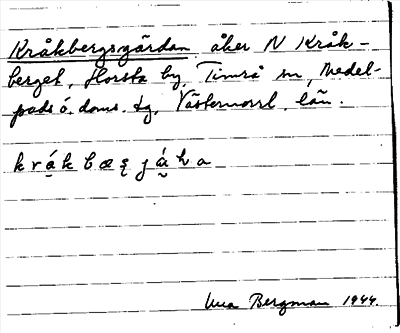 Kråkbergsgärdan åker N Kråk-
berget, Horsta by Timrå sn, Medel-
pads ö. doms. tg, Västernorrl. län.
k r å k b æ ȩ j á h a
Una Bergman 1944.